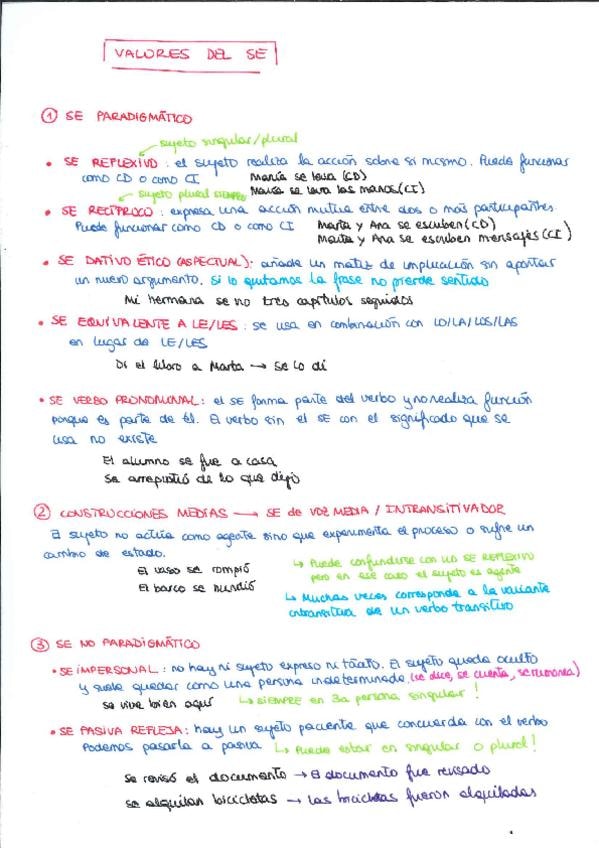 VALORES DEL SE
① SE PARADIGMÁTICO
sujeto singular/plural
• SE REFLEXIVO: el sujeto realiza la acción sobre si mismo. Puede funcionar
como CD o como CI María se lava (CD)
sujeto plural SIEMPRE María se lava las manos (CI)
• SE RECÍPROCO: expresa una acción mutua entre dos o más participantes.
Puede funcionar como CD o como CI Marta y Ana se escuben (CD)
Marta y Ana se escriben mensajes (CI)
• SE DATIVO ÉTICO (ASPECTUAL): añade un matiz de implicación sin aportar
un nuevo argumento. Si lo quitamos la frase no pierde sentido
Mi hermana se vio tres capítulos seguidos
• SE EQUIVALENTE A LE/LES: se usa en combinación con LO/LA/LOS/LAS
en lugar de LE/LES
Di el libro a Marta → Se lo di
• SE VERBO PRONOMINAL: el SE forma parte del verbo y no realiza función
porque es parte de él. El verbo sin el SE con el significado que se
usa no existe
El alumno se fue a casa
Se arrepintió de lo que dijo
② CONSTRUCCIONES MEDIAS → SE de VOZ MEDIA / INTRANSITIVADOR
El sujeto no actúa como agente sino que experimenta el proceso o sufre un
cambio de estado.
El vaso se rompió
El barco se hundió
↳ Puede confundirse con un SE REFLEXIVO
pero en ese caso el sujeto es agente
↳ Muchas veces corresponde a la variante
intransitiva de un verbo transitivo
③ SE NO PARADIGMÁTICO
• SE IMPERSONAL: no hay ni sujeto expreso ni tácito. El sujeto queda oculto
y suele quedar como una persona indeterminada (se dice, se cuenta, se rumorea)
se vive bien aquí ↳ SIEMPRE en 3a persona singular!
• SE PASIVA REFLEJA: hay un sujeto paciente que concuerda con el verbo
Podemos pasarla a pasiva ↳ Puede estar en singular o plural!
Se revisó el documento → El documento fue revisado
Se alquilan bicicletas → Las bicicletas fueron alquiladas